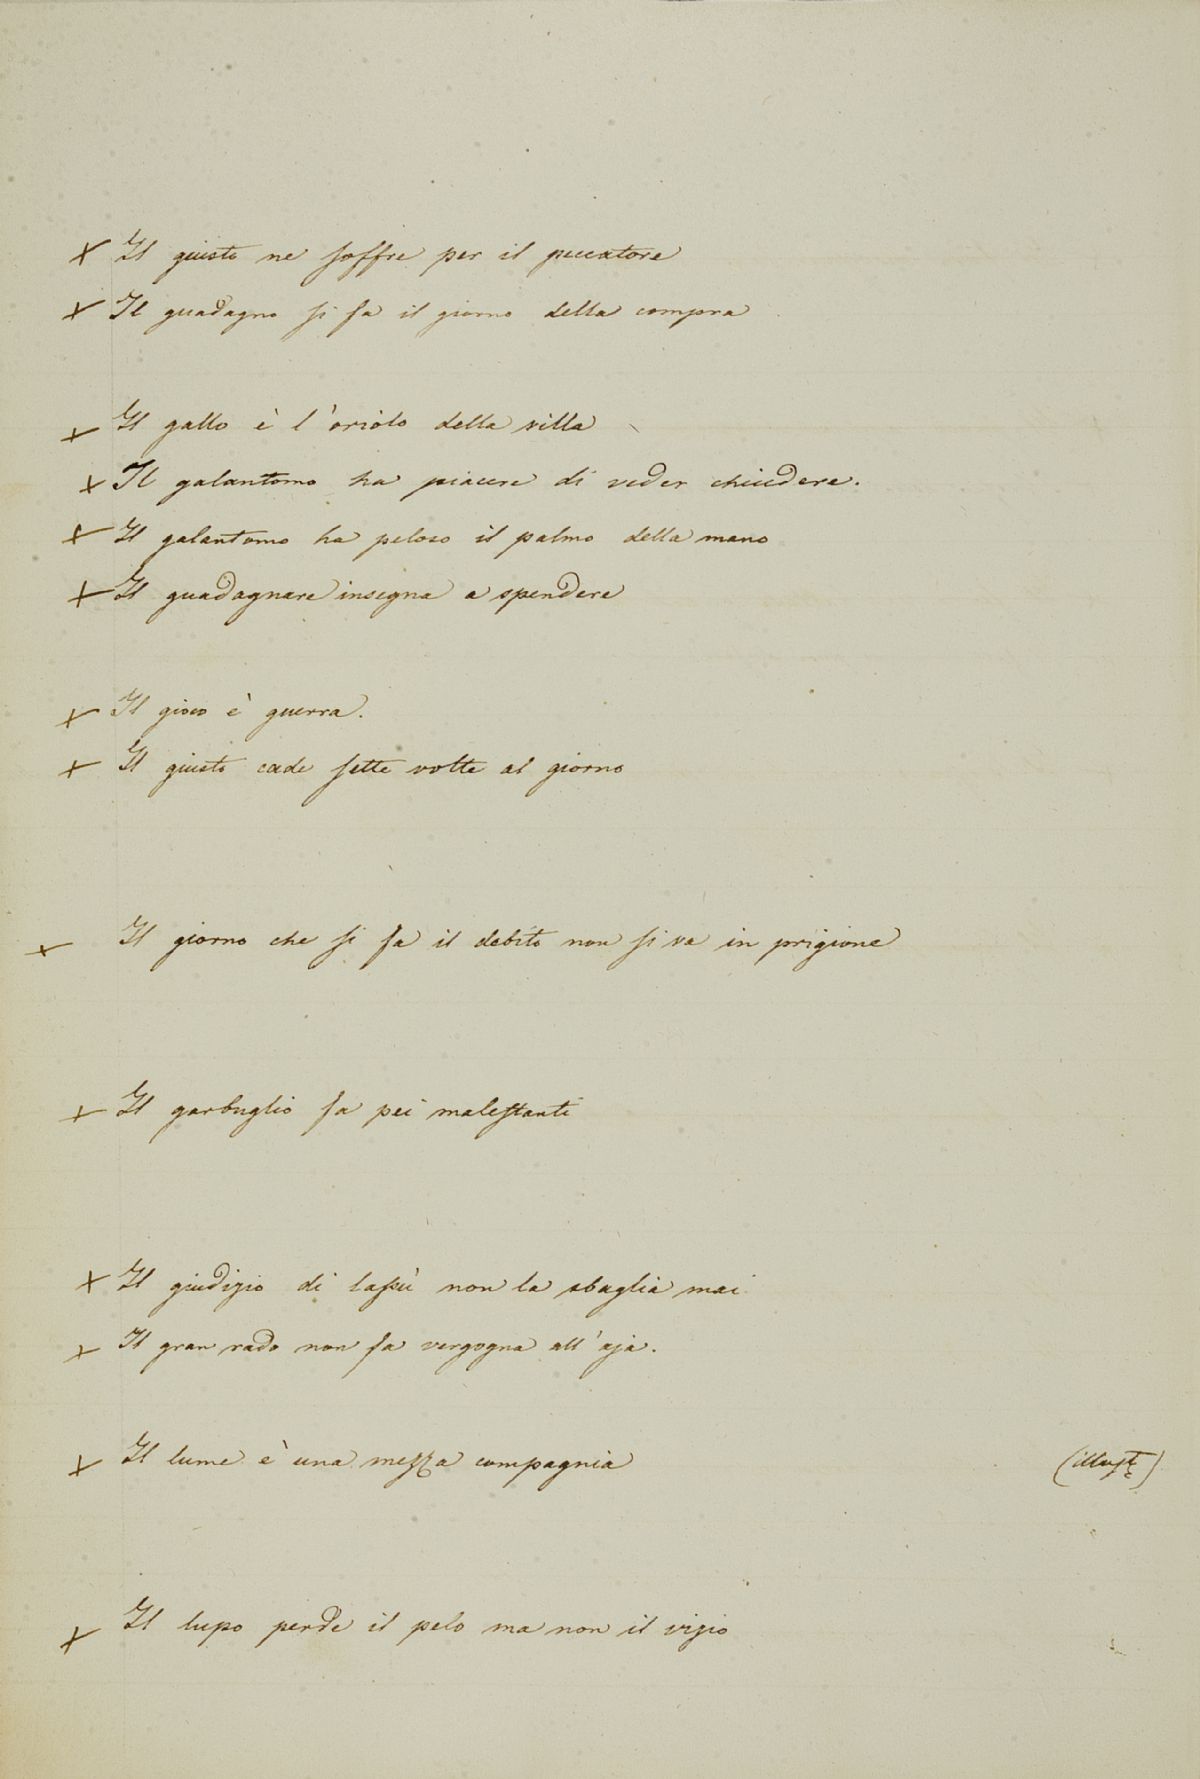 × Il giusto ne soffre per il peccatore
× Il guadagno si fa il giorno della compra
× Il gallo è l'oriolo della villa
× Il galantomo ha piacere di veder chiudere.
× Il galantomo ha peloso il palmo della mano
× Il guadagnare insegna a spendere
× Il gioco è guerra.
× Il giusto cade sette volte al giorno
× Il giorno che si fa il debito non si va in prigione
× Il garbuglio fa pei malestanti
× Il giudizio di lassù non la sbaglia mai
× Il gran rado non fa vergogna all'aja.
× Il lume è una mezza compagnia (illust)
× Il lupo perde il pelo ma non il vizio